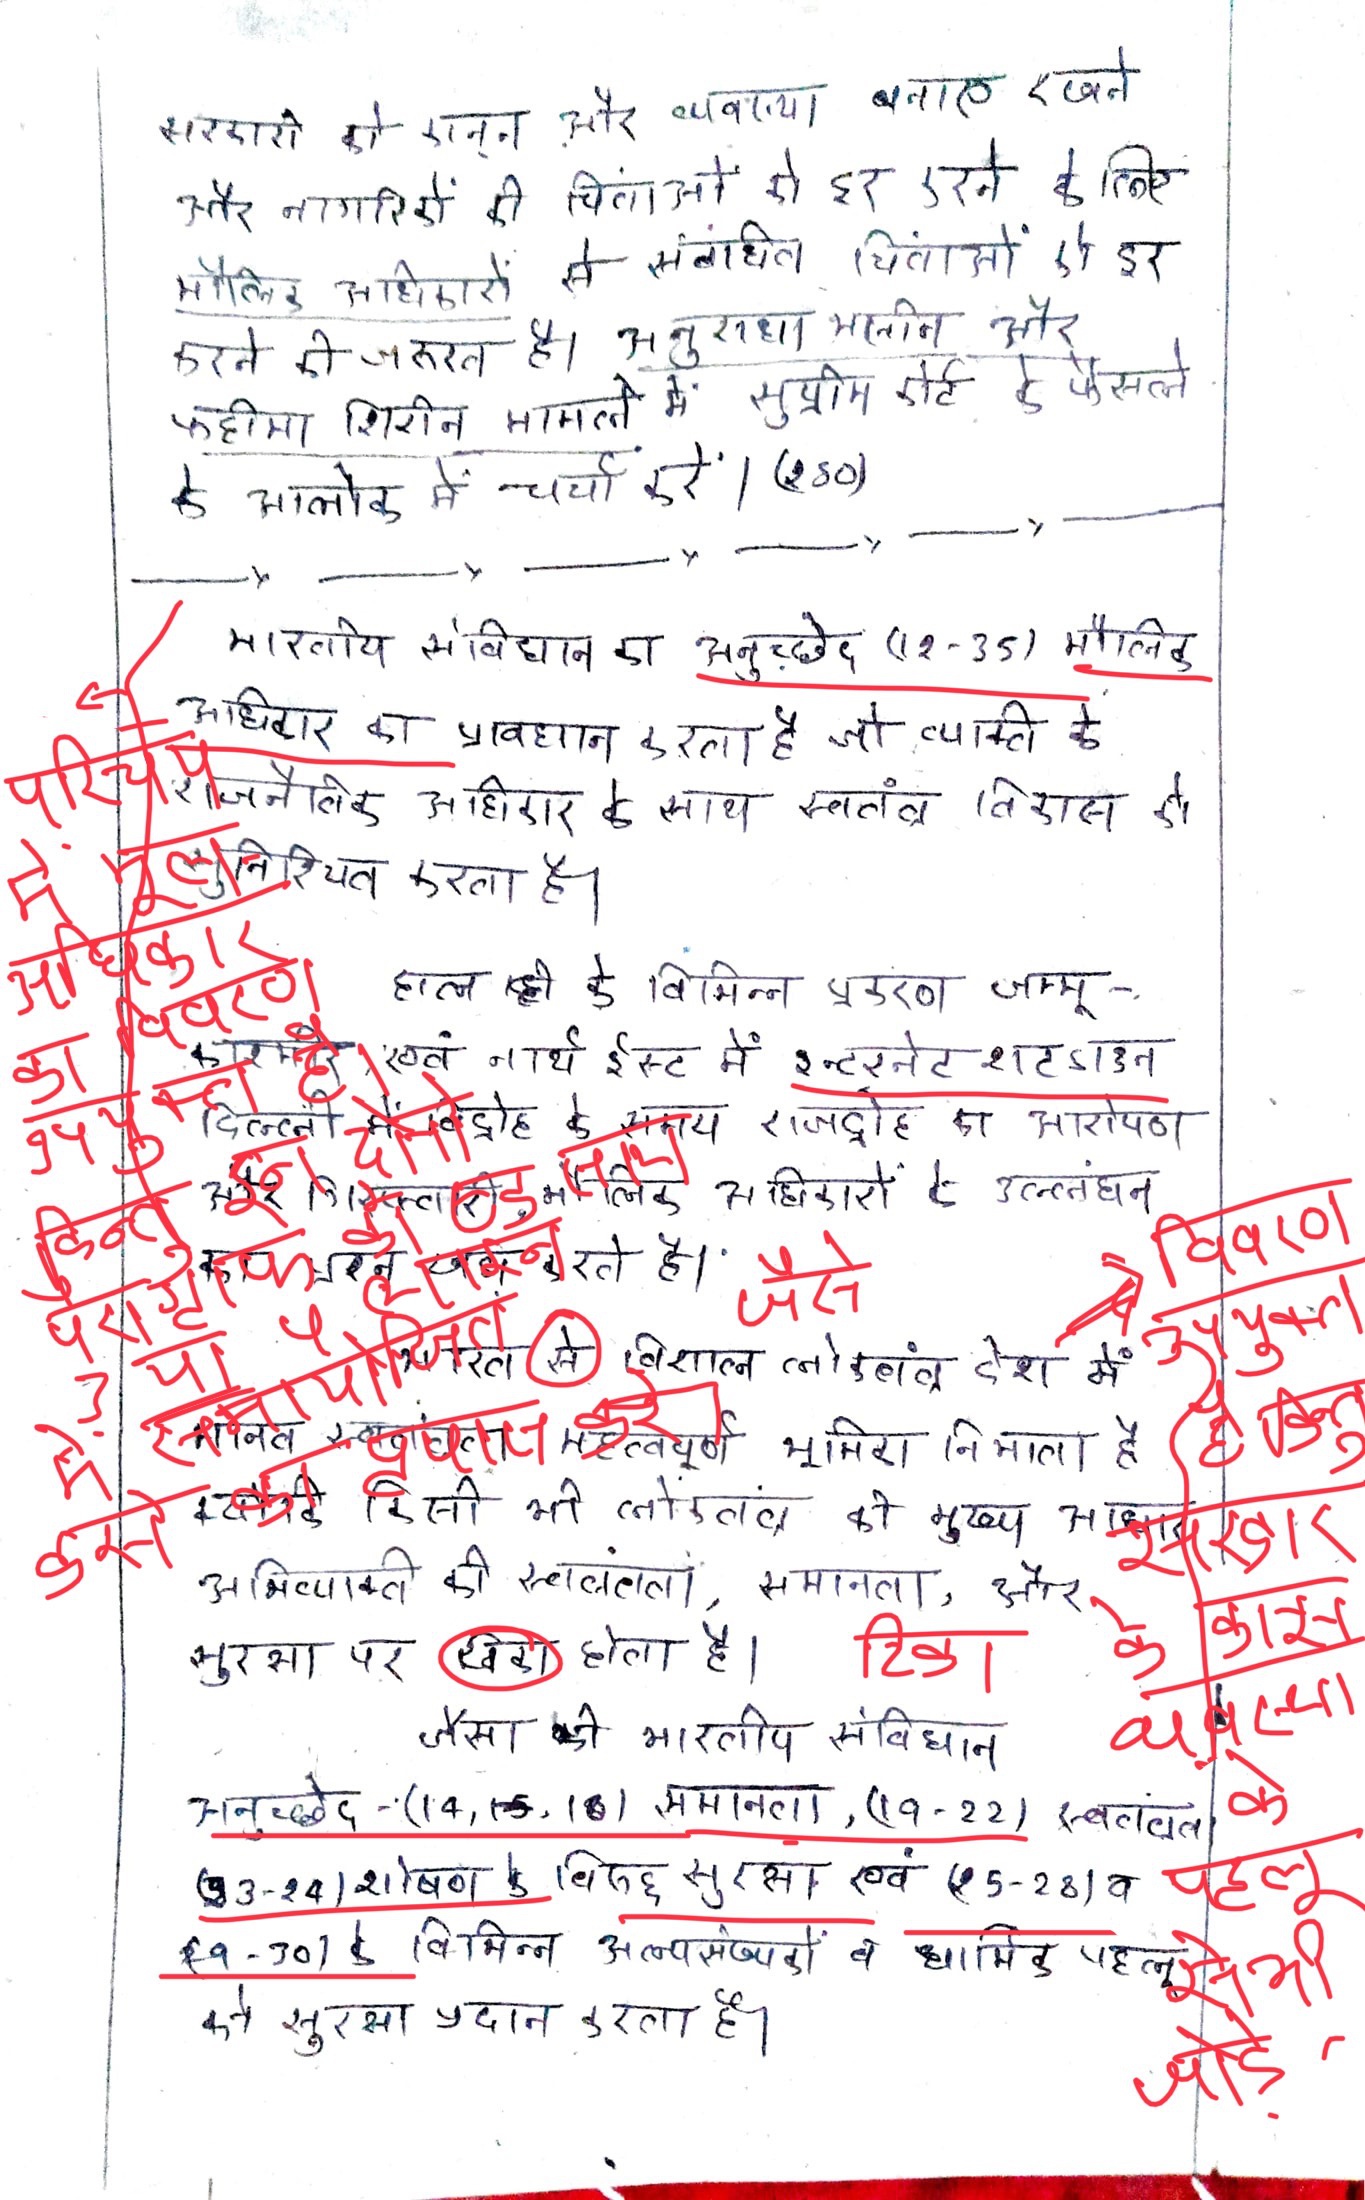 सरकारों को कानून और व्यवस्था बनाए रखने
और नागरिकों की चिंताओं को दूर करने के लिए
मौलिक अधिकारों से संबंधित चिंताओं को दूर
करने की जरूरत है। अनुराधा भसीन और
फहीमा शिरीन मामले में सुप्रीम कोर्ट के फैसले
के आलोक में चर्चा करें। (250)
भारतीय संविधान का अनुच्छेद (12-35) मौलिक
अधिकार का प्रावधान करता है जो व्यक्ति के
राजनैतिक अधिकार के साथ स्वतंत्र विकास को
सुनिश्चित करता है।
हाल ही के विभिन्न प्रकरण जम्मू-
काश्मीर, एवं नार्थ ईस्ट में इन्टरनेट शटडाउन
दिल्ली में विद्रोह के समय राजद्रोह का आरोपण
और गिरफ्तारी, मौलिक अधिकारों के उल्लंघन
का प्रश्न करते है।
भारत से विशाल लोकतंत्र देश में
मानव स्वतंत्रता महत्वपूर्ण भूमिका निभाता है
क्योंकि किसी भी लोकतंत्र की मुख्य आधार
अभिव्यक्ति की स्वतंत्रता, समानता, और
सुरक्षा पर टिका होता है।
जैसा की भारतीय संविधान
अनुच्छेद -(14, 15, 16) समानता, (19-22) स्वतंत्रता
(23-24) शोषण के विरुद्ध सुरक्षा एवं (25-28) व
29-30) के विभिन्न अल्पसंख्यकों व धार्मिक पहलू
को सुरक्षा प्रदान करता है।
परिचय
में मूल
अधिकार
का विवरण
उपयुक्त है।
किन्तु इन दोनों
पैराग्राफ को एक साथ
या
में समायोजित
करने का प्रयास करें
जैसे
टिका
विवरण
उपयुक्त
है किन्तु
सरकार
के
व्यवस्था
के
पहलू
को भी
जोड़े।